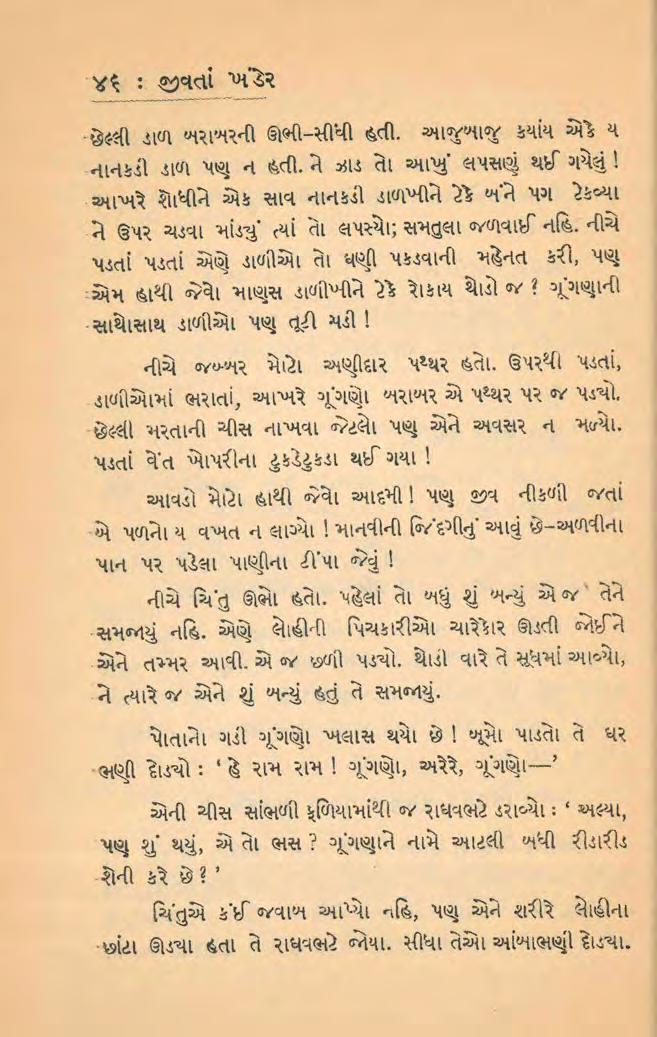 ૪૬ : જીવતાં ખંડેર
છેલ્લી ડાળ બરાબરની ઊભી–સીધી હતી. આજુબાજુ કયાંય એકે ય
નાનકડી ડાળ પણ ન હતી. ને ઝાડ તો આખું લપસણું થઈ ગયેલું !
આખરે શોધીને એક સાવ નાનકડી ડાળખીને ટેકે બંને પગ ટેકવ્યા
ને ઉપર ચડવા માંડ્યું ત્યાં તો લપસ્યો; સમતુલા જળવાઈ નહિ. નીચે
પડતાં પડતાં એણે ડાળીઓ તો ઘણી પકડવાની મહેનત કરી, પણ
એમ હાથી જેવો માણુસ ડાળીખીને ટેકે રોકાય થોડો જ ? ગૂંગણાની
સાથોસાથ ડાળીઓ પણ તૂટી પડી !
નીચે જબ્બર મોટો અણીદાર પથ્થર હતો. ઉપરથી પડતાં,
ડાળીઓમાં ભરાતાં, આખરે ગૂંગણો બરાબર એ પથ્થર પર જ પડ્યો.
છેલ્લી મરતાની ચીસ નાખવા જેટલો પણ એને અવસર ન મળ્યો.
પડતાં વેંત ખોપરીના ટુકડેટુકડા થઈ ગયા !
આવડો મોટો હાથી જેવો આદમી ! પણ જીવ નીકળી જતાં
બે પળનો ય વખત ન લાગ્યો ! માનવીની જિંદગીનું આવું છે–અળવીના
પાન પર પડેલા પાણીના ટીંપા જેવું !
નીચે ચિંતુ ઊભો હતો. પહેલાં તો બધું શું બન્યું એ જ તેને
સમજાયું નહિ. એણે લોહીની પિચકારીઓ ચારેકોર ઊડતી જોઈને
એને તમ્મર આવી. એ જ છળી પડ્યો. થોડી વારે તે સૂધમાં આવ્યો,
ને ત્યારે જ એને શું બન્યું હતું તે સમજાયું.
પોતાનો ગડી ગૂંગણો ખલાસ થયો છે ! બૂમો પાડતો તે ઘર
ભણી દોડ્યો : ‘ હે રામ રામ ! ગૂંગણો, અરેરે, ગૂંગણો—’
એની ચીસ સાંભળી ફળિયામાંથી જ રાઘવભટે ડરાવ્યો : ‘ અલ્યા,
પણ શું થયું, એ તો ભસ ? ગૂંગણાને નામે આટલી બધી રીડારીડ
શેની કરે છે ? ’
ચિંતુએ કંઈ જવાબ આપ્યો નહિ, પણ એને શરીરે લોહીના
છાંટા ઊડ્યા હતા તે રાઘવભટે જોયા. સીધા તેઓ આંબાભણી દોડ્યા.